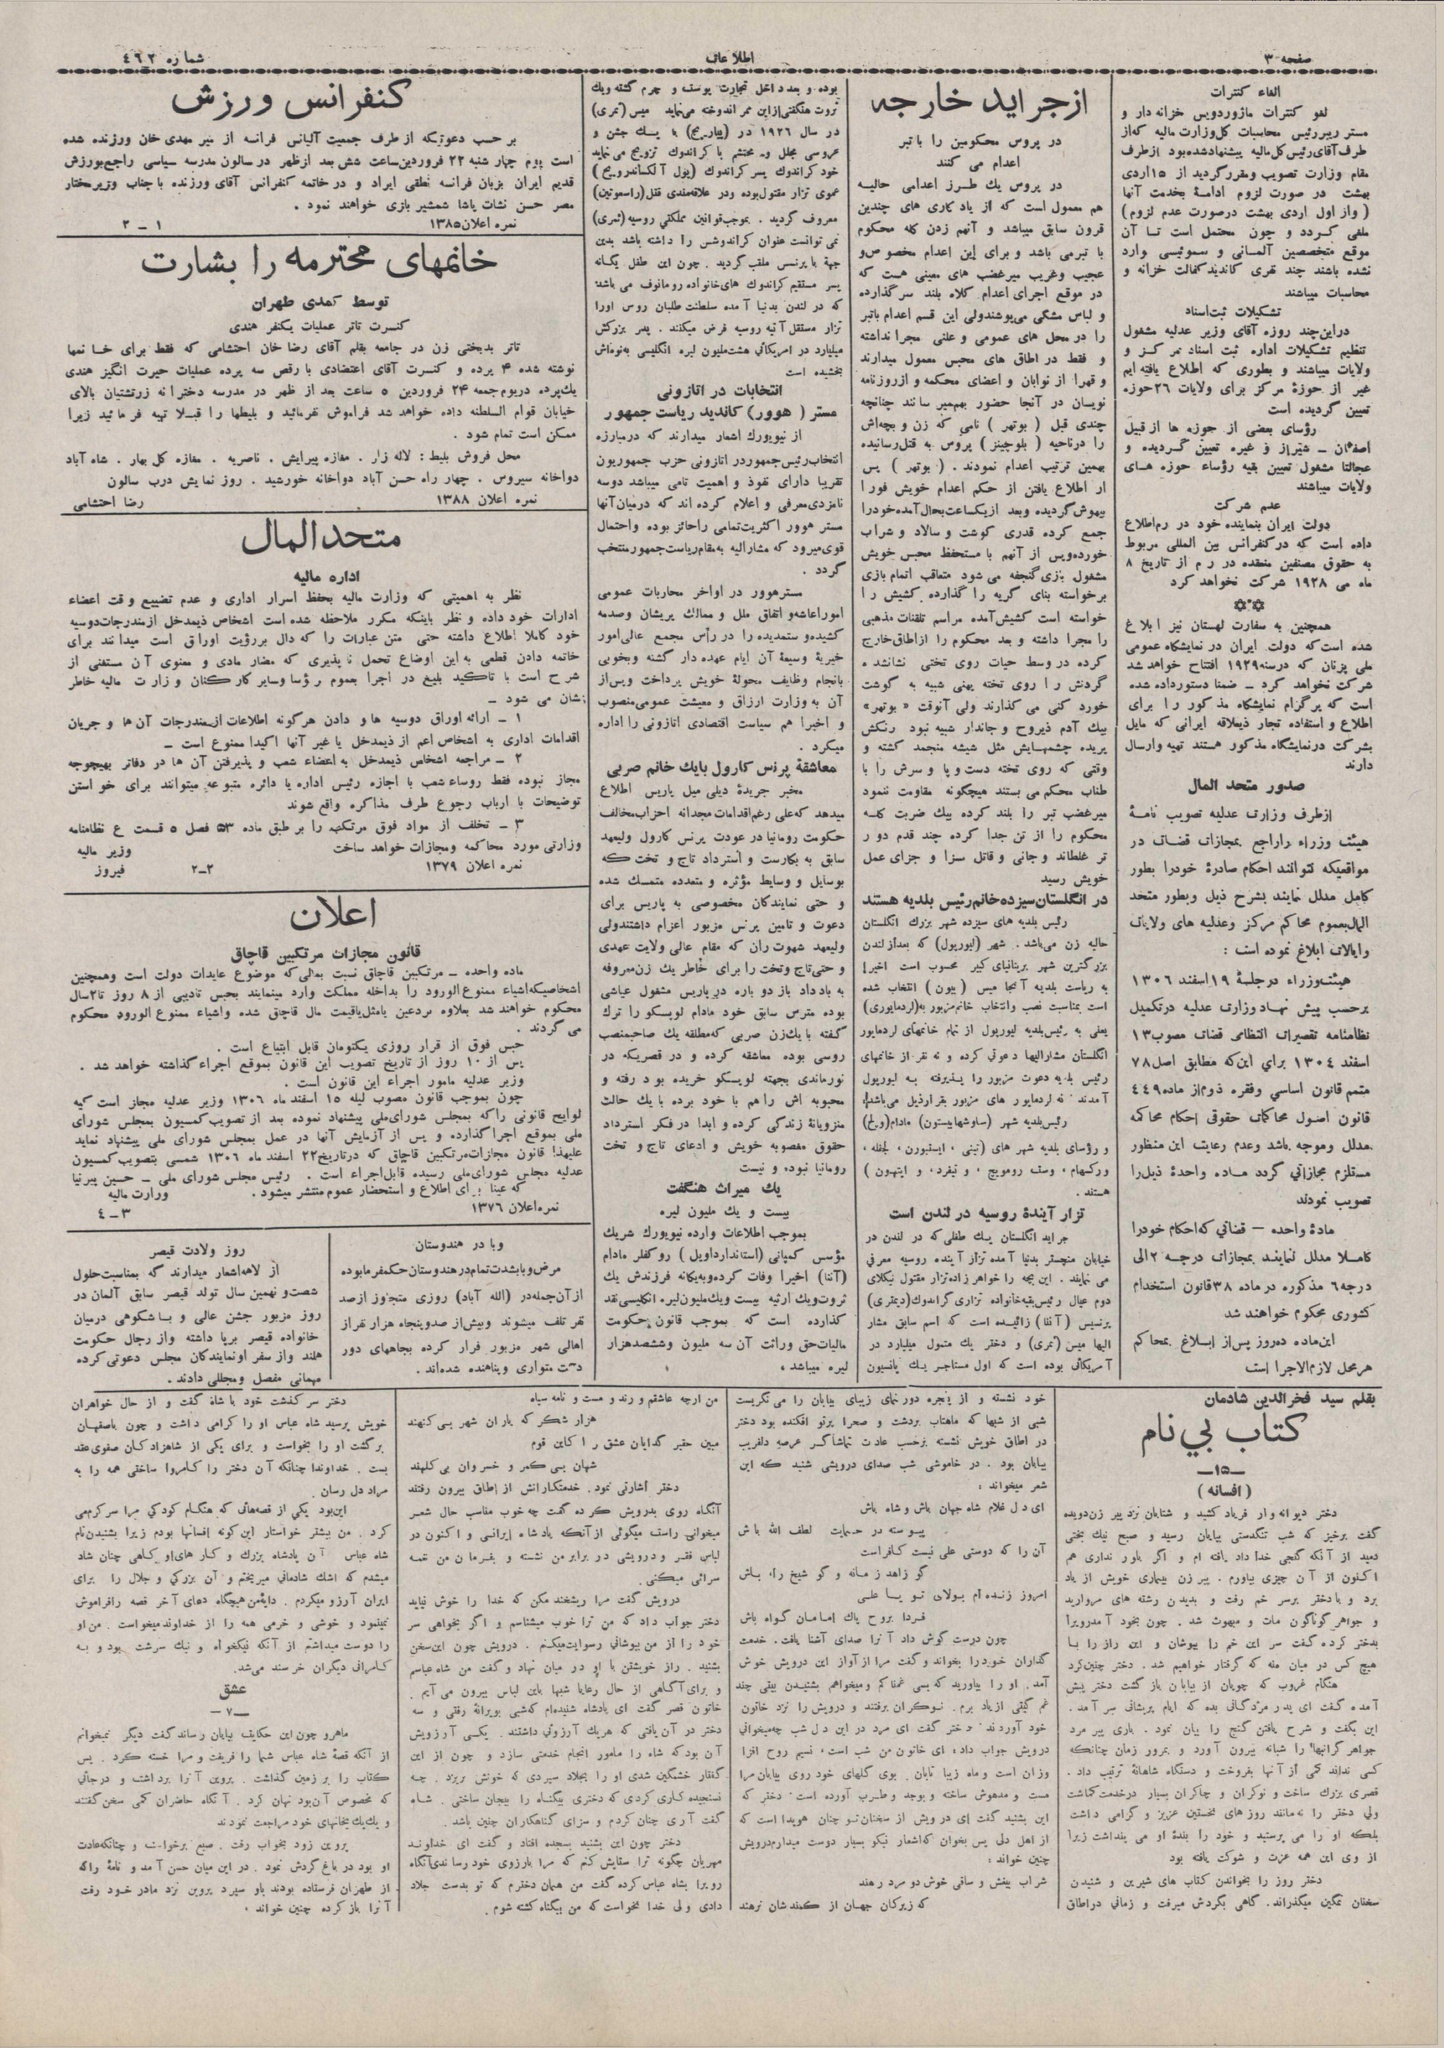 صفحه ۳
اطلاعات
شماره ۴۶۲
الغاء کنترات
لغو کنترات ماژوردویس خزانه دار و
مستر ریپررئیس محاسبات کل وزارت مالیه که از
طرف آقای رئیس کل مالیه پیشنهاد شده بود از طرف
مقام وزارت تصویب ومقرر گردید از ۱۵ اردی
بهشت در صورت لزوم ادامهٔ بخدمت آنها
( واز اول اردی بهشت در صورت عدم لزوم )
ملغی گردد و چون محتمل است تا آن
موقع متخصصین آلمانی و سوئیسی وارد
نشده باشند چند نفری کاندید کفالت خزانه و
محاسبات میباشند
تشکیلات ثبت اسناد
در این چند روزه آقای وزیر عدلیه مشغول
تنظیم تشکیلات اداره ثبت اسناد مرکز و
ولایات میباشند و بطوری که اطلاع یافته ایم
غیر از حوزهٔ مرکز برای ولایات ۲۶ حوزه
تعیین گردیده است
رؤسای بعضی از حوزه ها از قبیل
اصفهان ــ شیراز و غیره تعیین گردیده و
عجالتا مشغول تعیین بقیه رؤساء حوزه های
ولایات میباشند
عدم شرکت
دولت ایران بنماینده خود در رم اطلاع
داده است که در کنفرانس بین المللی مربوط
به حقوق مصنفین منعقده در رم از تاریخ ۸
ماه می ۱۹۲۸ شرکت نخواهد کرد
همچنین به سفارت لهستان نیز ابلاغ
شده است که دولت ایران در نمایشگاه عمومی
ملی پزنان که در سنه ۱۹۲۹ افتتاح خواهد شد
شرکت نخواهد کرد ــ ضمنا دستور داده شده
است که پرگرام نمایشگاه مذکور را برای
اطلاع و استفاده تجار ذیعلاقه ایرانی که مایل
بشرکت در نمایشگاه مذکور هستند تهیه وارسال
دارند
صدور متحد المال
از طرف وزارت عدلیه تصویب نامهٔ
هیئت وزراء راراجع بمجازات قضات در
مواقعیکه نتوانند احکام صادرهٔ خودرا بطور
کامل مدلل نمایند بشرح ذیل وبطور متحد
المال بعموم محاکم مرکز وعدلیه های ولایات
وایالات ابلاغ نموده است :
هیئت وزراء در جلسهٔ ۱۹ اسفند ۱۳۰۶
برحسب پیش نهاد وزارت عدلیه در تکمیل
نظامنامه تقصیرات انتظامی قضات مصوب ۱۳
اسفند ۱۳۰۴ برای این که مطابق اصل ۷۸
متمم قانون اساسی وفقره دوم از ماده ۴۴۹
قانون اصول محاکمات حقوقی احکام محاکمه
مدلل وموجه باشد وعدم رعایت این منظور
مستلزم مجازاتی گردد ماده واحدهٔ ذیل را
تصویب نمودند
مادهٔ واحده – قضاتی که احکام خودرا
کاملا مدلل ننمایند بمجازات درجه ۲ الی
درجه ۶ مذکوره در ماده ۳۸ قانون استخدام
کشوری محکوم خواهند شد
این ماده ده روز پس از ابلاغ بمحاکم
هر محل لازم الاجرا است
از جراید خارجه
در پروس محکومین را با تبر
اعدام می کنند
در پروس یك طرز اعدامی حالیه
هم معمول است که از یادکاری های چندین
قرون سابق میباشد و آنهم زدن کله محکوم
با تبر می باشد و برای این اعدام مخصوص و
عجیب وغریب میرغضب های معینی هست که
در موقع اجرای اعدام کلاه بلند سر گذارده
و لباس مشکی می پوشند ولی این قسم اعدام باتبر
را در محل های عمومی و علنی مجرا نداشته
و فقط در اطاق های محبس معمول میدارند
و قهرا از نوابان و اعضای محکمه و از روزنامه
نویسان در آنجا حضور بهم میرسانند چنانچه
چندی قبل ( بوتهر ) نامی که زن و بچه اش
را در ناحیه ( بلوجینز ) پروس به قتل رسانیده
بهمین ترتیب اعدام نمودند . ( بوتهر ) پس
از اطلاع یافتن از حکم اعدام خویش فورا
بیهوش گردیده وبعد از یکساعت بحال آمده خودرا
جمع کرده قدری گوشت و سالاد و شراب
خورده وپس از آنهم با مستحفظ محبس خویش
مشغول بازی گنجفه می شود متعاقب اتمام بازی
برخواسته بنای گریه را گذارده کشیش را
خواسته است کشیش آمده مراسم تلقنات مذهبی
را مجرا داشته و بعد محکوم را از اطاق خارج
کرده در وسط حیات روی تختی نشانده
گردنش را روی تخته پهنی شبیه به گوشت
خورد کنی می گذارند ولی آنوقت « بوتهر »
بیك آدم ذیروح و جاندار شبیه نبود رنکش
پریده چشمهایش مثل شیشه منجمد کشته و
وقتی که روی تخته دست و پا و سرش را با
طناب محکم می بستند هیچگونه مقاومت ننمود
میرغضب تبر را بلند کرده بیك ضربت کله
محکوم را از تن جدا کرده چند قدم دور
تر غلطاند وجانی و قاتل سزا و جزای عمل
خویش رسید
در انگلستان سیزده خانم رئیس بلدیه هستند
رئیس بلدیه های سیزده شهر بزرك انگلستان
حالیه زن می باشد . شهر (لیورپول) که بعد از لندن
بزرگترین شهر بریتانیای کبیر محسوب است اخیرا
به ریاست بلدیه آنجا میس (بیون) انتخاب شده
است بمناسبت نصب وانتخاب خانم مزبور به (لردمایوری)
یعنی به رئیس بلدیه لیورپول از تمام خانمهای لردمایور
انگلستان مشارالیها دعوتی کرده و نه نفر از خانمهای
رئیس بلدیه دعوت مزبور را پذیرفته به لیورپول
آمدند نه لردمایور های مزبور بقرارذیل می باشد:
رئیس بلدیه شهر (ساوشهامپستون) مادام (ویخ)
و رؤسای بلدیه شهر های (نینی ، ایستبورن ، لجفله ،
ورکسهام ، وست رومویچ ، و نیفرد ، و اینهون )
هستند .
تزار آیندهٔ روسیه در لندن است
جراید انگلستان یك طفلی که در لندن در
خیابان منچستر بدنیا آمده تزار آینده روسیه معرفی
می نمایند . این بچه را خواهر زاده تزار مقتول نیکلای
دوم عیال رئیس بقیه خانواده تزاری گراندوك (دیمتری)
پرنسس (آننا) زائیده است که اسم سابق مشار
الیها میس (امری) و دختر یك متمول میلیارد در
آمریکائی بوده است که اول مستاجر یك پانسیون
بوده و بعد داخل تجارت یوست و چرم گشته ویك
ثروت هنگفتی از این ممر اندوخته می نماید میس (امری)
در سال ۱۹۲۶ در (بیاریج) با یك جشن و
عروسی مجلل و محتشم با کراندوك تزویج می نماید
خود کراندوك پسر کراندوك (پول آلکساندرویچ)
عموی تزار مقتول بوده ودر علاقه مندی قتل (راسپوتین)
معروف گردید . بموجب قوانین مملکتی روسیه (امری)
نمی توانست عنوان کراندوشس را داشته باشد بدین
جهة با پرنسس ملقب گردید . چون این طفل یگانه
پسر مستقیم کراندوك های خانواده رومانوف می باشد
که در لندن بدنیا آمده سلطنت طلبان روس اورا
تزار مستقل آتیه روسیه فرض میکنند . پدر بزرگش
میلیارد در امریکائی هشت ملیون لیره انگلیسی به نوه اش
بخشیده است
انتخابات در اتازونی
مستر ( هوور ) کاندید ریاست جمهور
از نیویورك اشعار میدارند که در مبارزه
انتخاب رئیس جمهور در اتازونی حزب جمهوریون
تقریبا دارای نفوذ و اهمیت تامی میباشد دوسه
نامزدی معرفی و اعلام کرده اند که در میان آنها
مستر هوور اکثریت تمامی راحائز بوده واحتمال
قوی میرود که مشارالیه به مقام ریاست جمهور منتخب
گردد .
مستر هوور در اواخر محاربات عمومی
امور اعاشه و اتفاق ملل و ممالك پریشان وصدمه
کشیده و ستمدیده را در رأس مجمع عالی امور
خیریهٔ وسیعهٔ آن ایام عهده دار گشته وبخوبی
بانجام وظایف محولهٔ خویش پرداخت وپس از
آن به وزارت ارزاق و معیشت عمومی منصوب
و اخیرا هم سیاست اقتصادی اتازونی را اداره
میکرد .
معاشقهٔ پرنس کارول بایك خانم صربی
مخبر جریدهٔ دیلی میل پاریس اطلاع
میدهد که علی رغم اقدامات مجدانه احزاب مخالف
حکومت رومانیا در عودت پرنس کارول ولیعهد
سابق به بکارست و استرداد تاج و تخت که
بوسایل و وسایط مؤثره و متعدده متمسك شده
و حتی نمایندگان مخصوصی به پاریس برای
دعوت و تامین پرنس مزبور اعزام داشتند ولی
ولیعهد شهوت ران که مقام عالی ولایت عهدی
و حتی تاج وتخت را برای خاطر یك زن معروفه
به باد داد باز دو باره در پاریس مشغول عیاشی
بوده مترس سابق خود مادام لوپسکو را ترك
گفته با یك زن صربی که مطلقه یك صاحبمنصب
روسی بوده معاشقه کرده و در قصریکه در
نورماندی بجهته لوپسکو خریده بود رفته و
محبوبه اش راهم با خود برده با یك حالت
منزویانهٔ زندگی کرده و ابدا در فکر استرداد
حقوق مغصوبه خویش و ادعای تاج و تخت
رومانیا نبوده و نیست
یك میراث هنگفت
بیست و یك ملیون لیره
بموجب اطلاعات وارده نیویورك شریك
مؤسس کمپانی (استاندارد اویل ) روکفلر مادام
(آننا) اخیرا وفات کرده و به یگانه فرزندش یك
ثروت ویك ارثیه بیست ویك ملیون لیره انکلیسی نقد
گذارده است که بموجب قانون حکومت
مالیات حق وراثت آن سه ملیون وششصد هزار
لیره میباشد ،
کنفرانس ورزش
بر حسب دعوتیکه از طرف جمعیت آلیانس فرانسه از میر مهدی خان ورزنده شده
است یوم چهار شنبه ۲۲ فروردین ساعت شش بعد از ظهر در سالون مدرسه سیاسی راجع بورزش
قدیم ایران بزبان فرانسه نطقی ایراد و در خاتمه کنفرانس آقای ورزنده با جناب وزیر مختار
مصر حسن نشات پاشا شمشیر بازی خواهند نمود .
نمره اعلان ۱۳۸۵
۱ ــ ۲
خانمهای محترمه را بشارت
توسط کمدی طهران
کنسرت تاتر عملیات یکنفر هندی
تاتر بدبختی زن در جامعه بقلم آقای رضا خان احتشامی که فقط برای خانمها
نوشته شده ۴ پرده و کنسرت آقای اعتضادی با رقص سه پرده عملیات حیرت انگیز هندی
یك پرده در یوم جمعه ۲۴ فروردین ۵ ساعت بعد از ظهر در مدرسه دخترانه زرتشتیان بالای
خیابان قوام السلطنه داده خواهد شد فراموش نفرمائید و بلیطها را قبلا تهیه فرمائید زیرا
ممکن است تمام شود .
محل فروش بلیط : لاله زار . مغازه پیرایش . ناصریه . مغازه کل بهار . شاه آباد
دواخانه سیروس . چهار راه حسن آباد دواخانه خورشید . روز نمایش درب سالون
نمره اعلان ۱۳۸۸
رضا احتشامی
متحد المال
اداره مالیه
نظر به اهمیتی که وزارت مالیه بحفظ اسرار اداری و عدم تضییع وقت اعضاء
ادارات خود داده و نظر باینکه مکرر ملاحظه شده است اشخاص ذیمدخل از مندرجات دوسیه
خود کاملا اطلاع داشته حتی متن عبارات را که دال بر رؤیت اوراق است میدانند برای
خاتمه دادن قطعی به این اوضاع تحمل ناپذیری که مضار مادی و معنوی آن مستغنی از
شرح است با تاکید بلیغ در اجرا بعموم رؤسا وسایر کارکنان وزارت مالیه خاطر
نشان می شود ــ
۱ ــ ارائه اوراق دوسیه ها و دادن هر گونه اطلاعات از مندرجات آن ها و جریان
اقدامات اداری به اشخاص اعم از ذیمدخل یا غیر آنها اکیدا ممنوع است ــ
۲ ــ مراجعه اشخاص ذیمدخل به اعضاء شعب و پذیرفتن آن ها در دفاتر بهیچوجه
مجاز نبوده فقط روساء شعب با اجازه رئیس اداره یا دائره متبوعه میتوانند برای خواستن
توضیحات با ارباب رجوع طرف مذاکره واقع شوند
۳ ــ تخلف از مواد فوق مرتکب را بر طبق ماده ۵۳ فصل ۵ قسمت ع نظامنامه
وزارتی مورد محاکمه ومجازات خواهد ساخت
وزیر مالیه
نمره اعلان ۱۳۷۹
۲ــ۲
فیروز
اعلان
قانون مجازات مرتکبین قاچاق
ماده واحده ــ مرتکبین قاچاق نسبت بمالی که موضوع عایدات دولت است وهمچنین
اشخاصیکه اشیاء ممنوع الورود را بداخله مملکت وارد مینمایند بحبس تادیبی از ۸ روز تا ۲ سال
محکوم خواهند شد بعلاوه بردعین یا مثل یا قیمت مال قاچاق شده واشیاء ممنوع الورود محکوم
می گردند .
حبس فوق از قرار روزی یکتومان قابل ابتیاع است .
پس از ۱۰ روز از تاریخ تصویب این قانون بموقع اجراء گذاشته خواهد شد .
وزیر عدلیه مامور اجراء این قانون است .
چون بموجب قانون مصوب لیله ۱۵ اسفند ماه ۱۳۰۶ وزیر عدلیه مجاز است کیه
لوایح قانونی راکه بمجلس شورای ملی پیشنهاد نموده بعد از تصویب کمسیون بمجلس شورای
ملی بموقع اجرا گذارده و پس از آزمایش آنها در عمل بمجلس شورای ملی پیشنهاد نماید
علیهذا قانون مجازات مرتکبین قاچاق که در تاریخ ۲۲ اسفند ماه ۱۳۰۶ شمسی بتصویب کمسیون
عدلیه مجلس شورای ملی رسیده قابل اجراء است . رئیس مجلس شورای ملی ــ حسین پیرنیا
که عینا برای اطلاع و استحضار عموم منتشر میشود .
وزارت مالیه
نمره اعلان ۱۳۷۶
۳ــ۴
وبا در هندوستان
مرض وبا بشدت تمام در هندوستان حکمفرما بوده
از آن جمله در (الله آباد) روزی متجاوز از صد
نفر تلف میشوند وبیش از صد و پنجاه هزار نفر از
اهالی شهر مزبور فرار کرده بجاهای دور
دست متواری وپناهنده شده اند .
روز ولادت قیصر
از لاهه اشعار میدارند که بمناسبت حلول
شصت و نهمین سال تولد قیصر سابق آلمان در
روز مزبور جشن عالی و باشکوهی در میان
خانواده قیصر برپا داشته واز رجال حکومت
هلند واز سفراو نمایندگان مجلس دعوتی کرده
مهمانی مفصل ومجللی دادند .
بقلم سید فخرالدین شادمان
کتاب بی نام
ــ۱۵ــ
( افسانه )
دختر دیوانه وار فریاد کشید و شتابان نزد پیر زن دویده
گفت برخیز که شب تنگدستی بپایان رسید و صبح نیك بختی
دمید از آنکه گنجی خداداد یافته ام و اگر باور نداری هم
اکنون از آن چیزی بیاورم . پیر زن بیماری خویش از یاد
برد و با دختر بر سر خم رفت و بدیدن رشته های مروارید
و جواهر گوناگون مات و مبهوت شد . چون بخود آمد رو برا
بدختر کرده گفت سر این خم را بپوشان و این راز را با
هیچ کس در میان منه که گرفتار خواهیم شد . دختر چنین کرد
هنگام غروب که چوپان از بیابان باز گشت دختر پیش
آمده گفت ای پدر مژدگانی بده که ایام پریشانی سر آمد .
این بگفت و شرح یافتن گنج را بیان نمود . باری پیر مرد
جواهر گرانبها را شبانه بیرون آورد و بمرور زمان چنانکه
کسی نداند کمی از آنها بفروخت و دستگاه شاهانهٔ ترتیب داد .
قصری بزرك ساخت و نوکران و چاکران بسیار در خدمت گماشت
ولی دختر را نه مانند روز های نخستین عزیز و گرامی داشت
بلکه او را می پرستید و خود را بندهٔ او می پنداشت زیرا
از وی این همه عزت و شوکت یافته بود
دختر روز را بخواندن کتاب های شیرین و شنیدن
سخنان نمکین میگذراند. گاهی بگردش میرفت و زمانی در اطاق
خود نشسته و از پنجره دورنمای زیبای بیابان را می نگریست
شبی از شبها که ماهتاب بردشت و صحرا پرتو افکنده بود دختر
در اطاق خویش نشسته برحسب عادت تماشاگر عرصهٔ دلفریب
بیابان بود . در خاموشی شب صدای درویشی شنید که این
شعر میخواند :
ای دل غلام شاه جهان باش و شاه باش
پیوسته در حمایت لطف الله باش
آن را که دوستی علی نیست کافر است
گو زاهد زمانه و گو شیخ راه باش
امروز زنده ام بولای تو یا علی
فردا بروح پاك امامان گواه باش
چون درست گوش داد آنرا صدای آشنا یافت . خدمت
گذاران خود را بخواند و گفت مرا از آواز این درویش خوش
آمد . او را بیاورید که بسی غمناکم و میخواهم بشنیدن بیتی چند
غم گیتی از یاد برم . نوکران برفتند و درویش را نزد خاتون
خود آوردند . دختر گفت ای مرد در این دل شب چه میخوانی
درویش جواب داد ، ای خاتون من شب است ، نسیم روح افزا
وزان است و ماه زیبا تابان . بوی گلهای خود روی بیابان مرا
مست و مدهوش ساخته و بوجد و طرب آورده است . دختر که
این بشنید گفت ای درویش از سخنان تو چنان هویدا است که
از اهل دلی پس بخوان که اشعار نیکو بسیار دوست میدارم درویش
چنین خواند :
شراب بیغش و ساقی خوش دو مرد رهند
که زیرکان جهان از کمندشان نرهند
من ارچه عاشقم و رند و مست و نامه سیاه
هزار شکر که یاران شهر بی گنهند
مبین حقیر گدایان عشق را کاین قوم
شهان بی کمر و خسروان بی کلهند
دختر اشارتی نمود . خدمتکارانش از اطاق بیرون رفتند
آنگاه روی بدرویش کرده گفت چه خوب مناسب حال شعر
میخوانی راست میگوئی از آنکه پادشاه ایرانی و اکنون در
لباس فقر و درویشی در برابر من نشسته و بفرمان من نغمه
سرائی میکنی .
درویش گفت مرا ریشخند مکن که خدا را خوش نیاید
دختر جواب داد که من ترا خوب میشناسم و اگر بخواهی سر
خود را از من بپوشانی رسوایت میکنم . درویش چون این سخن
بشنید . راز خویشتن با او در میان نهاد و گفت من شاه عباسم
و برای آگاهی از حال رعایا شبها باین لباس بیرون می آیم .
خاتون قصر گفت ای پادشاه شنیده ام که شبی بویرانهٔ رفتی و سه
دختر در آن یافتی که هریك آرزوئی داشتند . یکی آرزویش
آن بود که شاه را مامور انجام خدمتی سازد و چون از این
گفتار خشمگین شدی او را بجلاد سپردی که خونش بریزد . چه
نسنجیده کاری کردی که دختری بیگناه را بیجان ساختی . شاه
گفت آری چنان کردم و سزای گناهکاران چنین باشد .
دختر چون این بشنید بسجده افتاد و گفت ای خداوند
مهربان چگونه ترا ستایش کنم که مرا بآرزوی خود رساندی آنگاه
روبرا بشاه عباس کرده گفت من همان دخترم که تو بدست جلاد
دادی ولی خدا نخواست که من بیگناه کشته شوم .
دختر سر گذشت خود با شاه گفت و از حال خواهران
خویش پرسید شاه عباس او را گرامی داشت و چون باصفهان
برگشت او را بخواست و برای یکی از شاهزادگان صفوی عقد
بست . خداوندا چنانکه آن دختر را کامروا ساختی همه را به
مراد دل رسان .
این بود یکی از قصه هائی که هنگام کودکی مرا سرگرم می
کرد . من بیشتر خواستار این گونه افسانها بودم زیرا بشنیدن نام
شاه عباس آن پادشاه بزرك و کار های او گاهی چنان شاد
میشدم که اشك شادمانی میریختم و آن بزرگی و جلال را برای
ایران آرزو میکردم . دایهٔ من هیچگاه دعای آخر قصه رافراموش
نمینمود و خوشی و خرمی همه را از خداوند میخواست . من او
را دوست میداشتم از آنکه نیکخواه و نیك سرشت بود و به
کامرانی دیگران خرسند می شد .
عشق
ــ۷ــ
ماهرو چون این حکایت بپایان رساند گفت دیگر نمیخوانم
از آنکه قصهٔ شاه عباس شما را فریفت و مرا خسته کرد . پس
کتاب را بر زمین گذاشت . پروین آنرا برداشت و در جائی
که مخصوص آن بود نهان کرد . آنگاه حاضران کمی سخن گفتند
و یك یك بخانهای خود مراجعت نمودند
پروین زود بخواب رفت . صبح برخاست و چنانکه عادت
او بود در باغ گردش نمود . در این میان حسن آمد و نامهٔ راکه
از طهران فرستاده بودند باو سپرد پروین نزد مادر خود رفت
آنرا باز کرده چنین خواند :